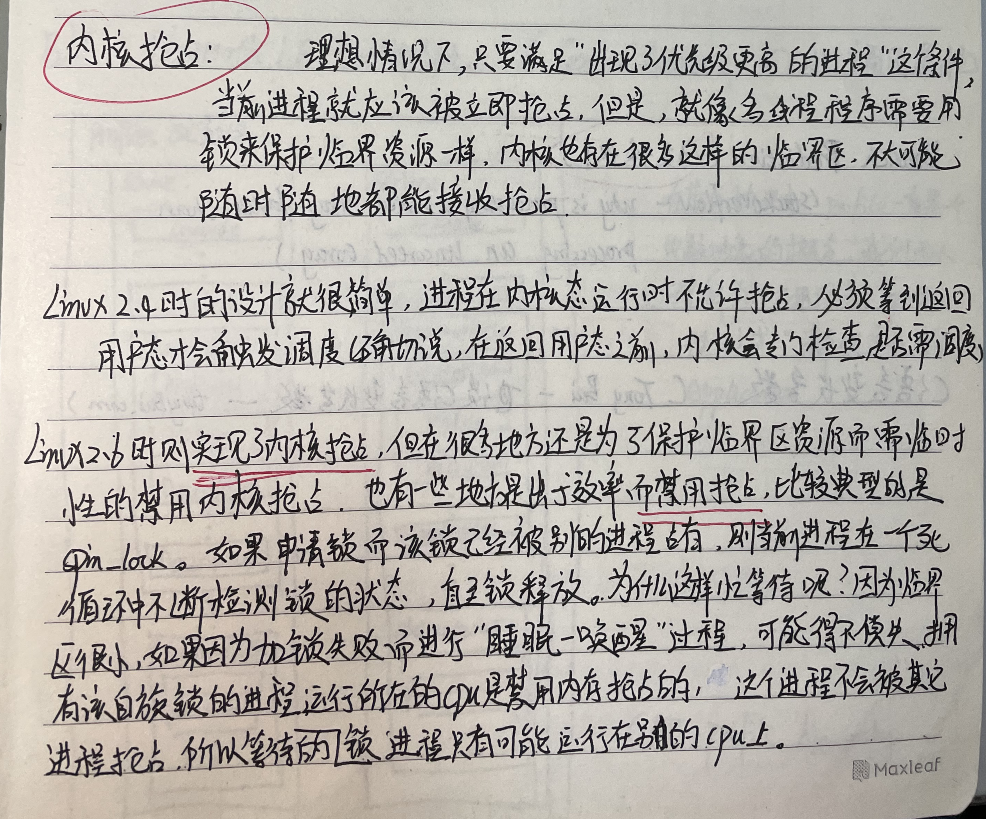 内核抢占: 理想情况下,只要满足"出现了优先级更高的进程"这条件,
当前进程就应该被立即抢占.但是,就像多线程程序需要用
锁来保护临界资源一样,内核也存在很多这样的临界区.不大可能
随时随地都能接收抢占.
Linux 2.4时的设计就很简单,进程在内核态运行时不允许抢占,必须等到返回
用户态才会触发调度(确切说,在返回用户态之前,内核会专门检查是否需调度)
Linux2.6时则实现了内核抢占,但在很多地方还是为了保护临界区资源而需临时
性的禁用内核抢占.也有一些地方是出于效率而禁用抢占,比较典型的是
spin_lock。如果申请锁而该锁已经被别的进程占有,则当前进程在一个死
循环中不断检测锁的状态,直至锁释放。为什么这样忙等待呢?因为临界
区很小,如果因为加锁失败而进行"睡眠—唤醒"过程,可能得不偿失.拥
有该自旋锁的进程运行所在的cpu是禁用内存抢占的,这个进程不会被其它
进程抢占.所以等待的锁进程只有可能运行在别的cpu上。
Maxleaf